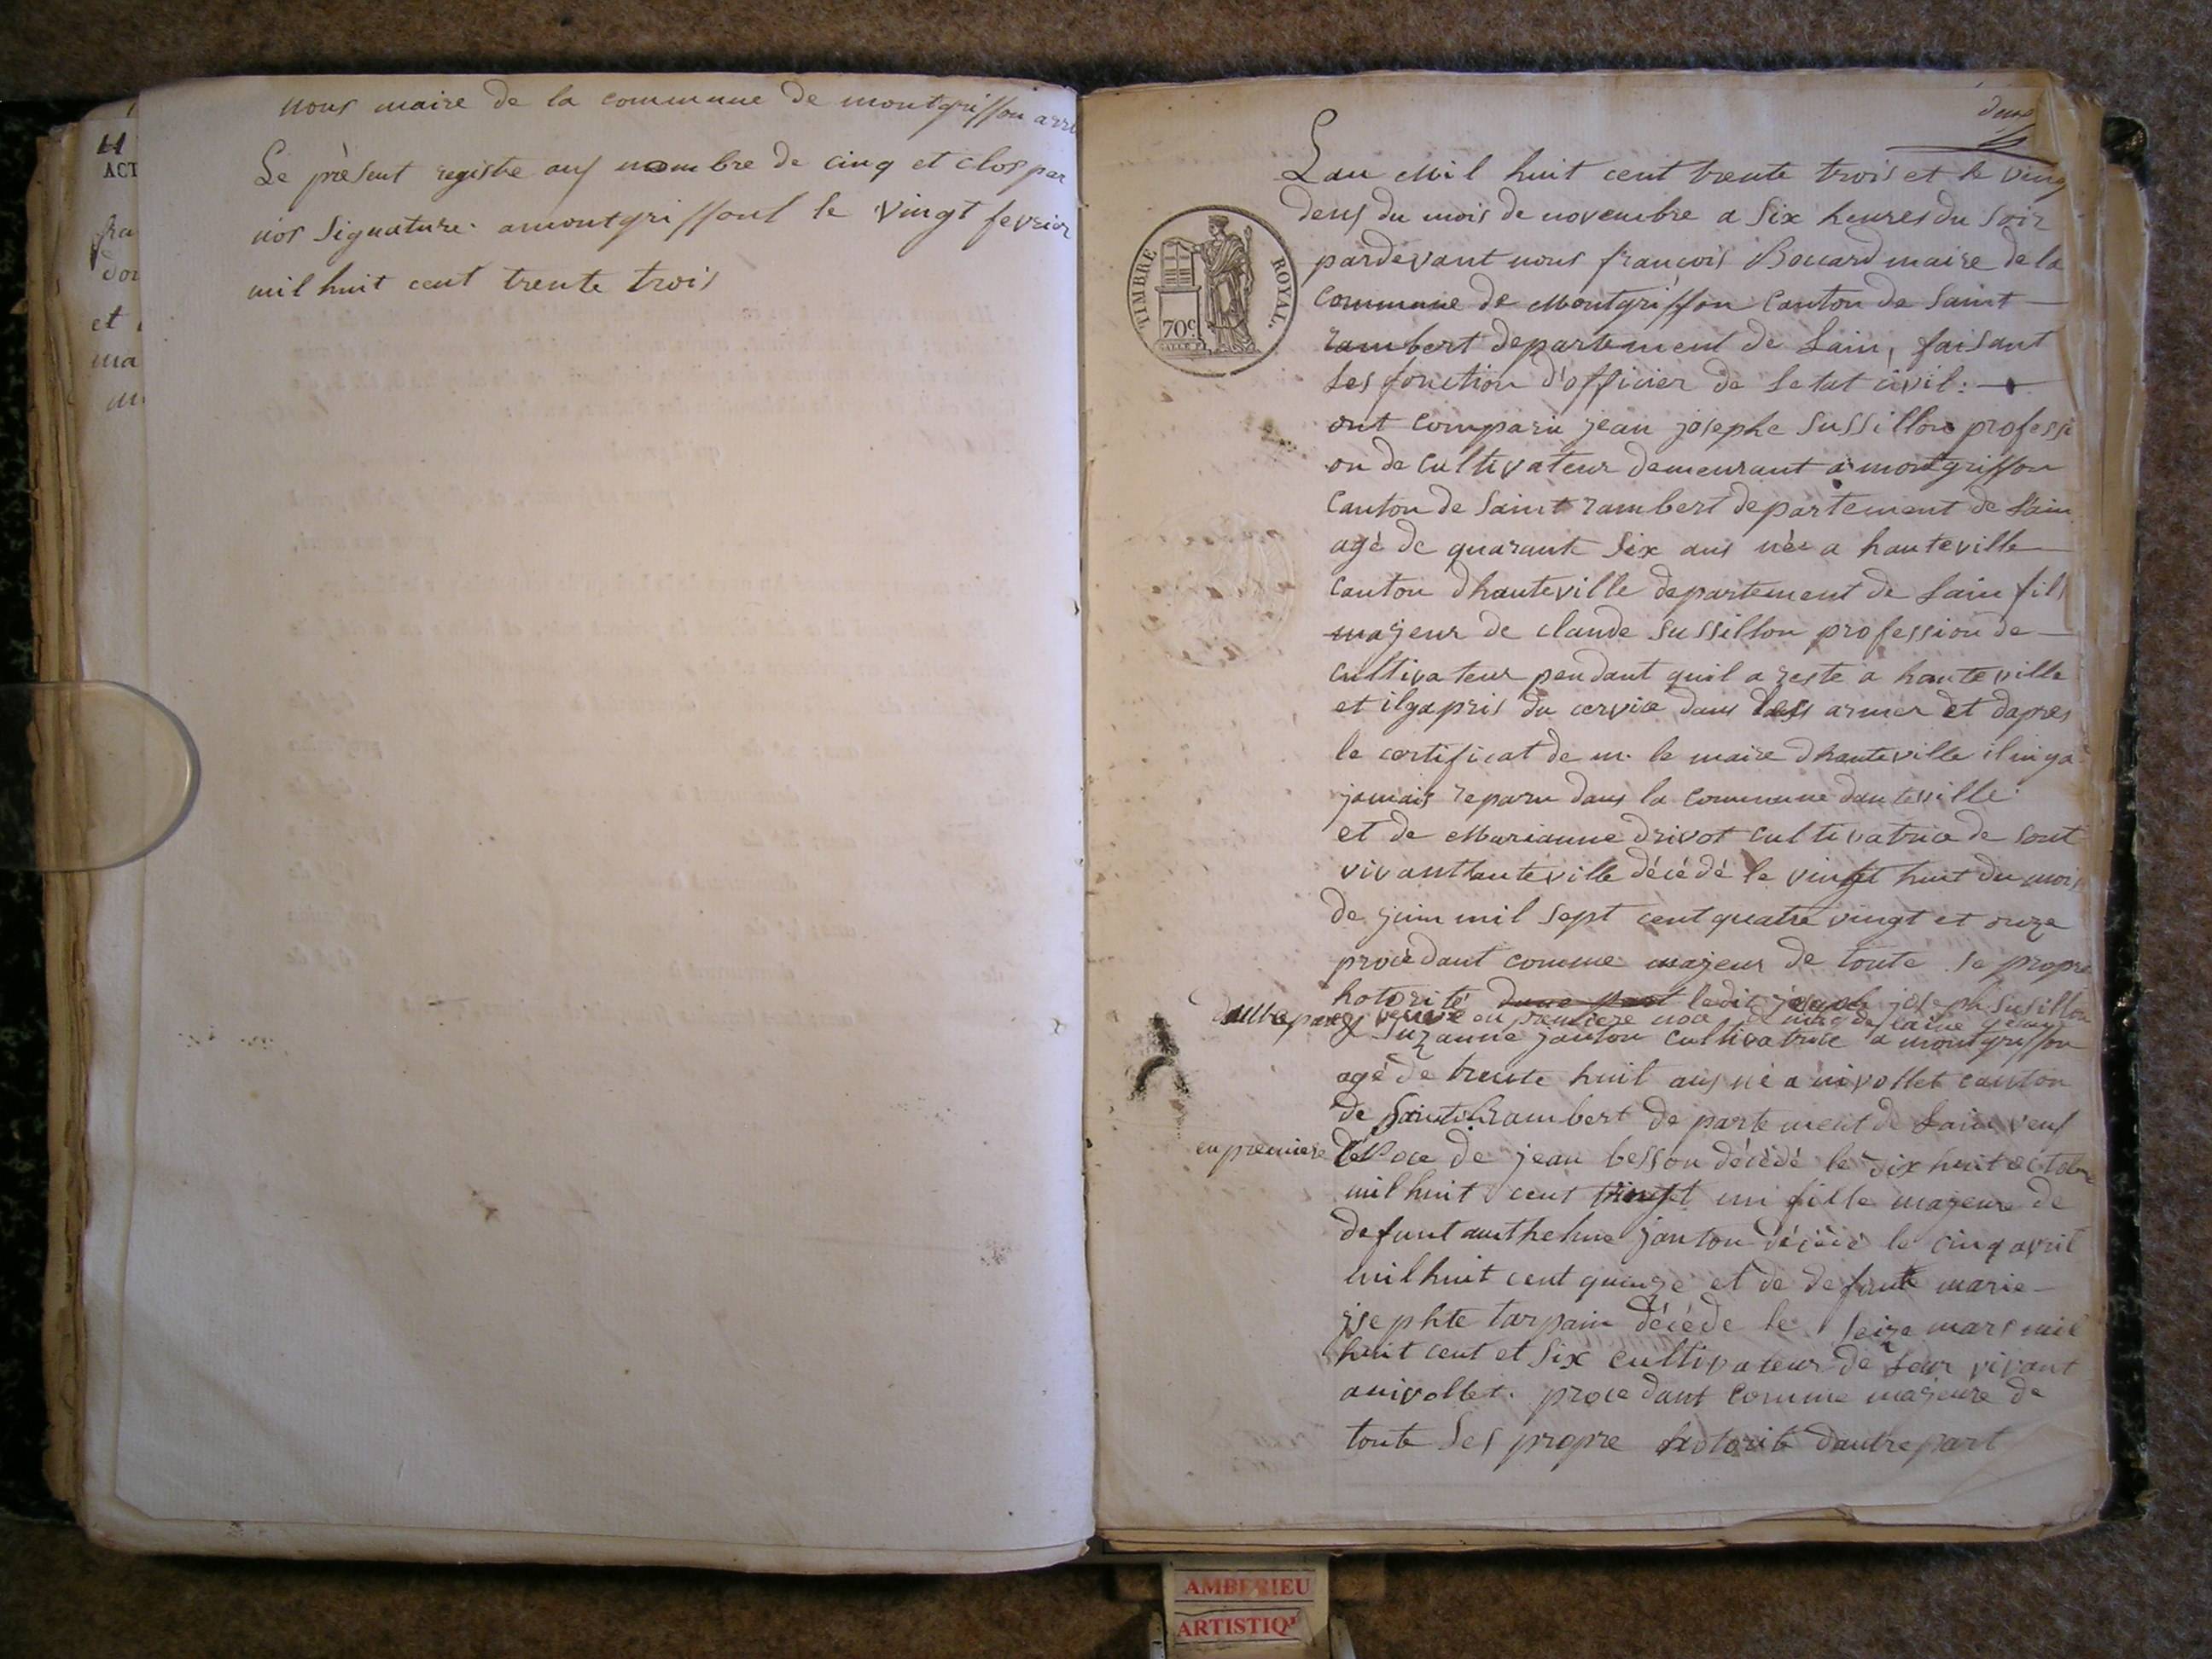 nous maire de la commune de montgriffon
Le présent registre auf nombre de cinq et clos par
nos signature. amontgriffont le vingt fevrier
mil huit cent trente trois
11
ACT
fra
dor
et
ma
deus
Lan Mil huit cent trente trois et le ving
deus du mois de novembre a six heures du soir
pardevant nous francois Boccard maire de la
commune de Montgriffon canton de saint
rambert departement de Lain, faisant
les fonction d'officier de letat civil:
ont comparu jean josephe Sussillon professi
on de cultivateur demeurant a montgriffon
canton de saint rambert departement de Lain
agé de quarante six ans née a hauteville
canton dhauteville departement de Lain fils
majeur de claude Sussillon profession de
cultivateur pendant quil a resté a hauteville
et ilya pris du cervice dans les armer et dapres
le certificat de m. le maire dhauteville il ny a
jamais reparu dans la commune dauteville
et de Marianne drivot cultivatrice de sont
vivant hauteville décédé le vingt huit du mois
de juin mil sept cent quatre vingt et onze
procédant comme majeur de toute se propre
hotorité dune part ledit joseph Susillon
dautre part veuve en premiere noce
et Suzanne janton cultivatrice a montgriffon
agé de trente huit ans né a nivollet canton
de saint Rambert departement de Lain veuf
en premiere Noce de jean besson décédé le dix huit octobre
mil huit cent vingt un fille majeure de
defunt anthelme janton décédé le cinq avril
mil huit cent quinze et de defunte marie
jsephte tarpain décéde le seize mars mil
huit cent et six cultivateur de leur vivant
anivollet. procedant comme majeure de
toute ses propre hotorité dautre part
TIMBRE ROYAL.
70c
AMBERIEU
ARTISTIQU